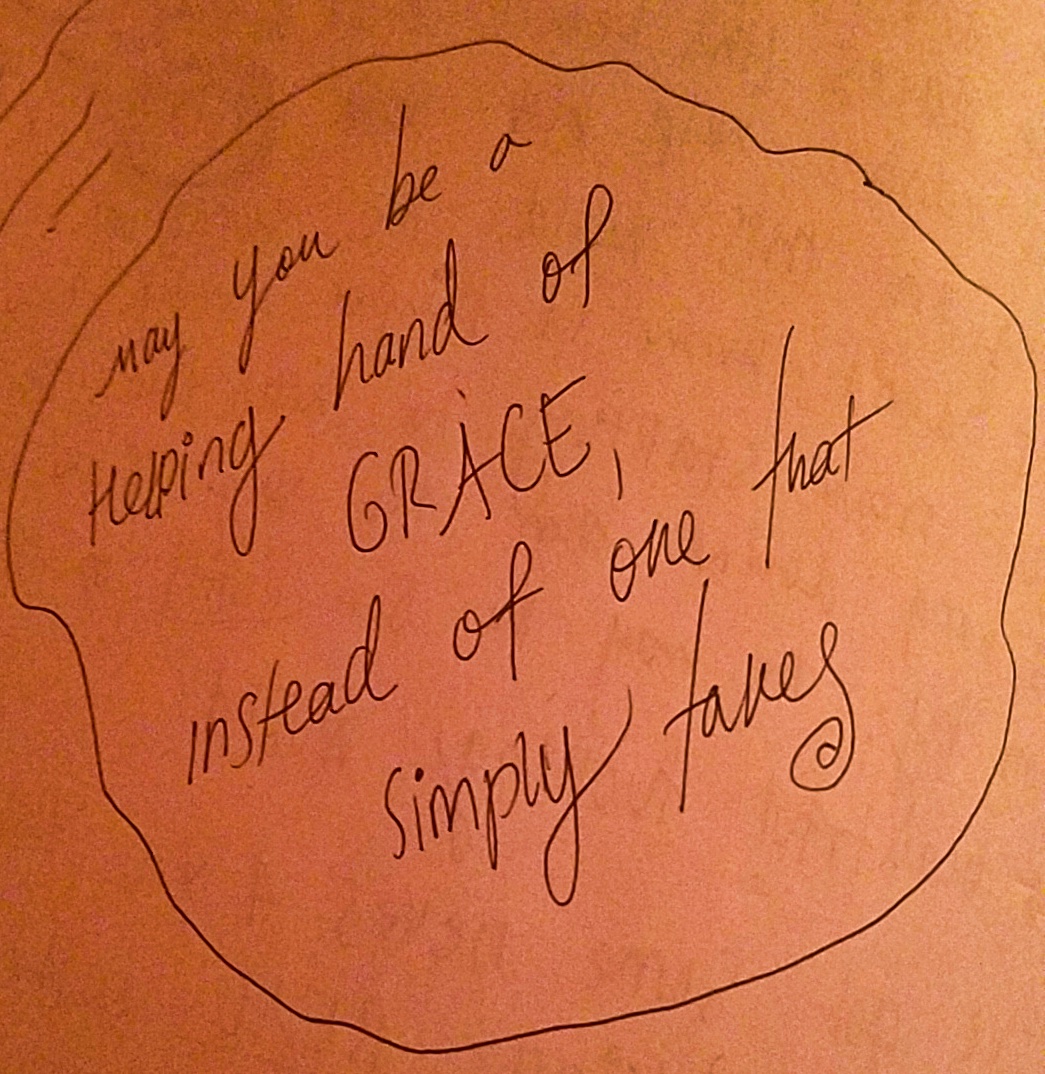 may you be a
Helping hand of
GRACE,
instead of one that
simply takes